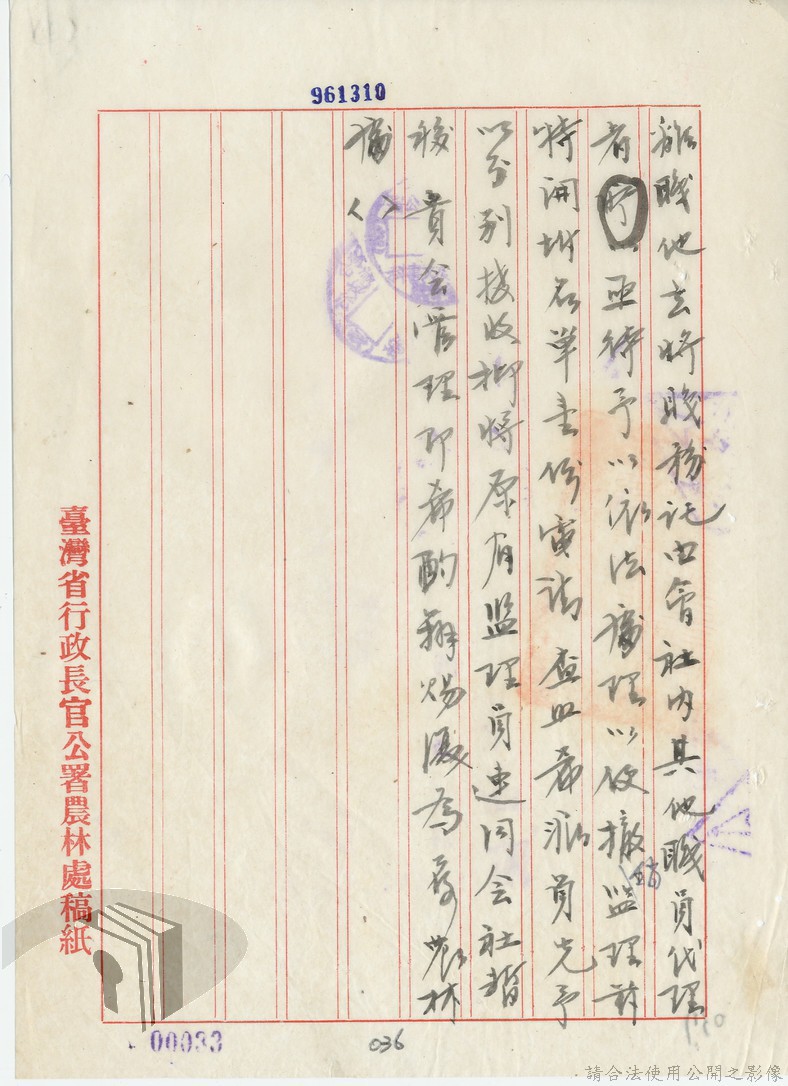 961310
離職他去將職務託由會社內其他職員代理
者亟待予以依法處理以便撤銷監理茲
特開附名單壹份電請查照希派員先予
以分別接收並將原有監理員連同會社暫
移貴會管理即希酌辦賜復為荷農林
處〈〉
臺灣省行政長官公署農林處稿紙
00033
036
請合法使用公開之影像